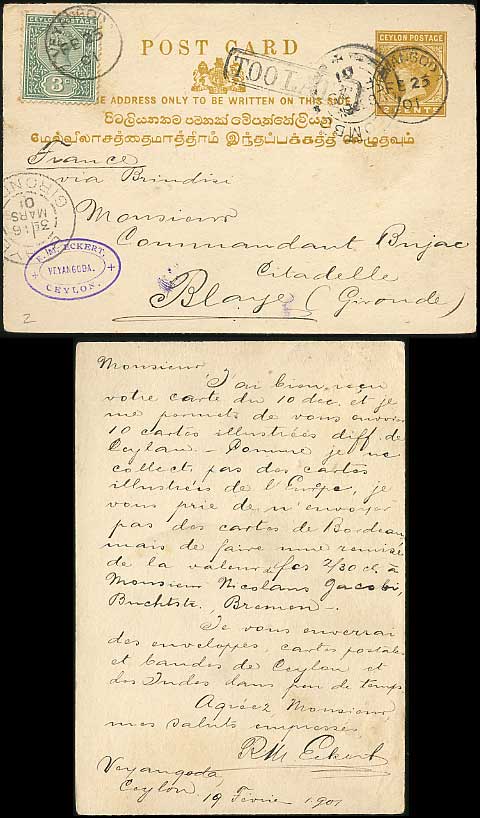 CEYLON POSTAGE
3 CTS
VEYANGOD
FE 25
01
POST CARD
TOO LA
CEYLON POSTAGE
2 CENTS
FE 25
01
THE ADDRESS ONLY TO BE WRITTEN ON THIS SIDE.
மேல்விலாசத்தைமாத்திரம் இந்தப்பக்கத்தில் எழுதவும்
France
via Brindisi
Monsieur
Commandant Bujac
Citadelle
Blaye (Gironde)
GIRONDE
16
MARS
01
R. M. ECKERT,
VEYANGODA.
CEYLON.
2
Monsieur
J'ai bien reçu
votre carte du 10 dec. et je
me permets de vous envoyer
10 cartes illustrées diff. de
Ceylan. — Comme je ne
collect. pas des cartes
illustrées de l'Europe, je
vous prie de n'envoyer
pas des cartes de Bordeaux
mais de faire une remise
de la valeur, fcs 2/30 cts. à
Monsieur Nicolaus Jacobi,
Buchtstr., Bremen —.
Je vous enverrai
des enveloppes, cartes postales
et bandes de Ceylon et
des Indes dans peu de temps
Agréez, Monsieur,
mes saluts empressés,
RM. Eckert
Veyangoda
Ceylon 19 Février 1901